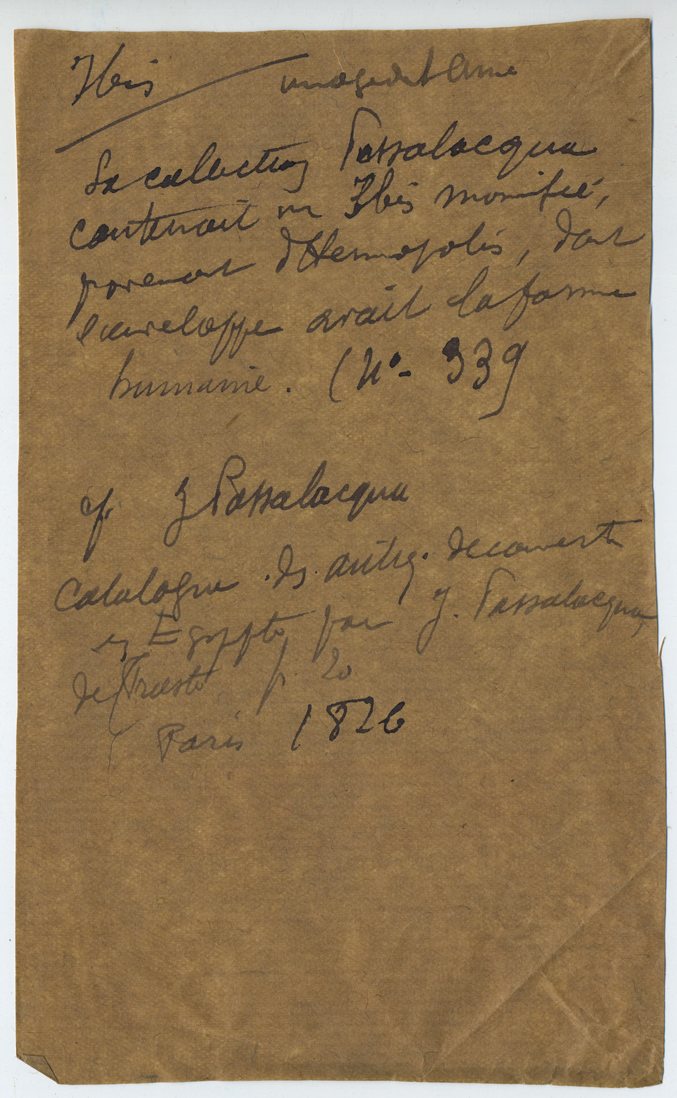 Ibis
La collection Passalacqua
contenait un Ibis momifié,
provenant d'Hermopolis, dont
l'enveloppe avait la forme
humaine. (No- 339)
cf J Passalacqua
Catalogue des antiq. découverts
en Egypte par J. Passalacqua,
de Trieste p. 20
Paris 1826